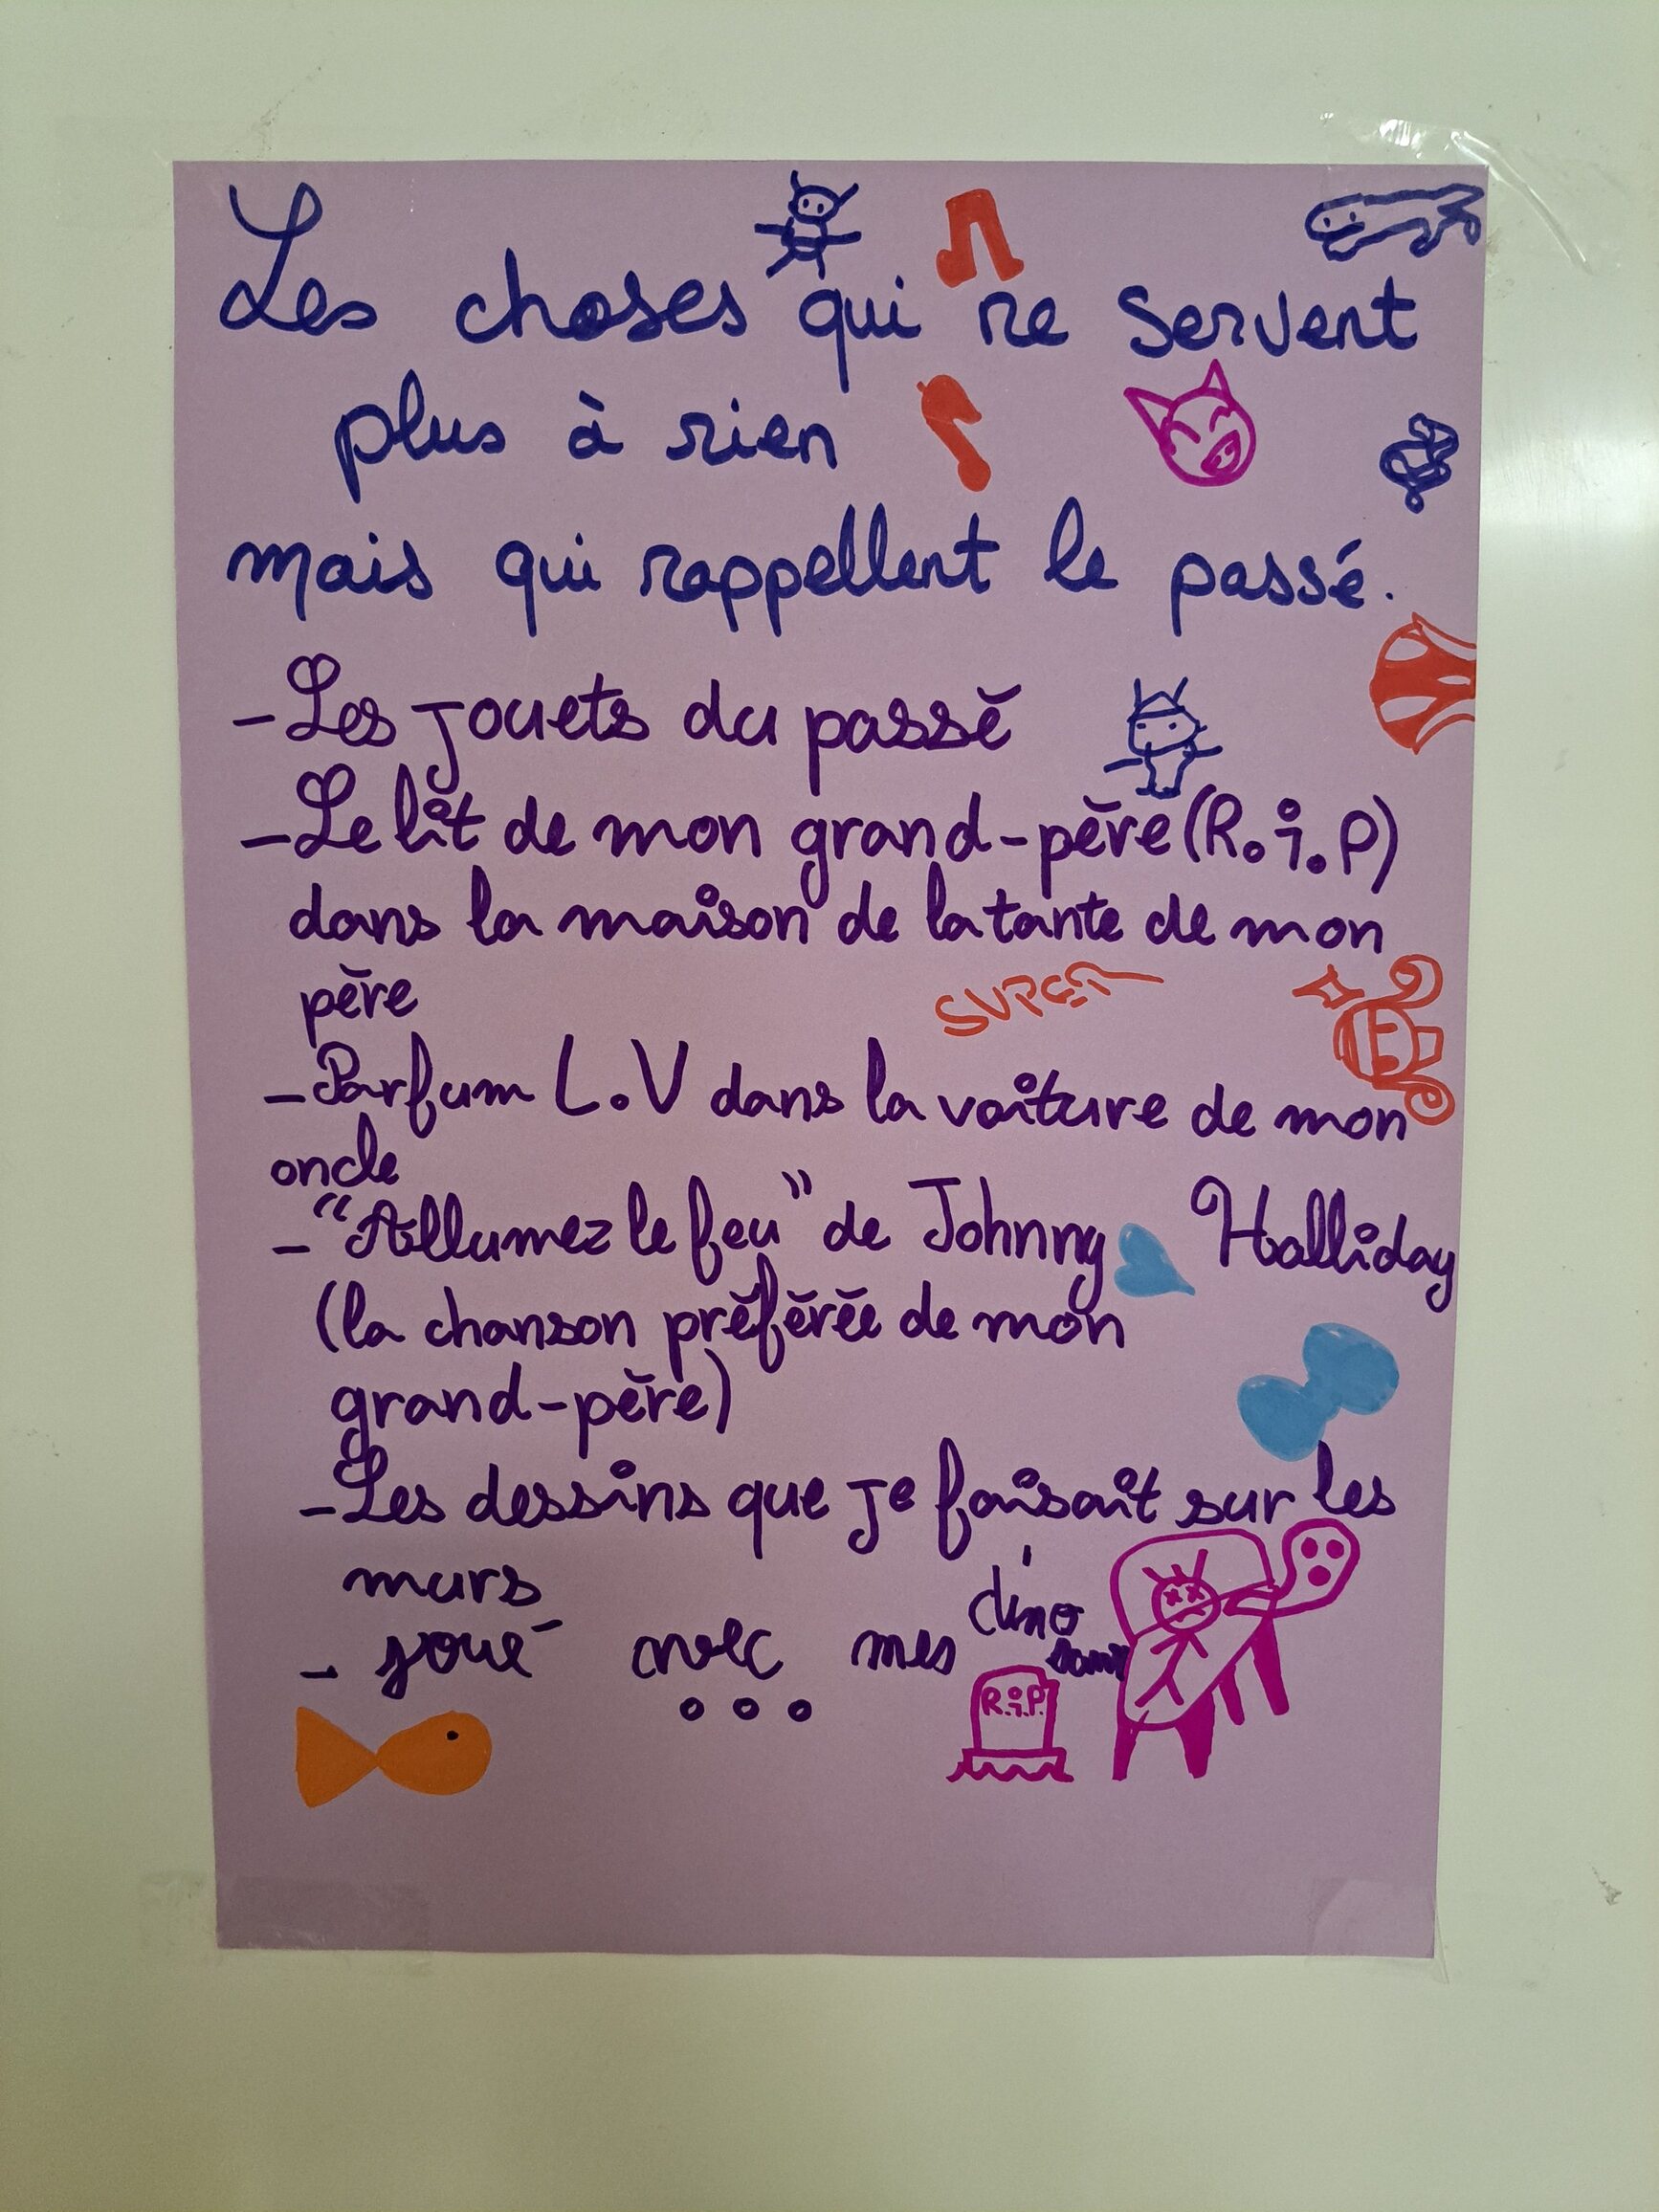 Les choses qui ne servent
plus à rien
mais qui rappellent le passé.
- Les jouets du passé
- Le lit de mon grand-père (R.i.P)
dans la maison de la tante de mon
père
SUPER
- Parfum L.V dans la voiture de mon
oncle
- "Allumez le feu" de Johnny Halliday
(la chanson préférée de mon
grand-père)
- Les dessins que je faisait sur les
murs
- joué avec mes dino
saur
...
R.i.P.